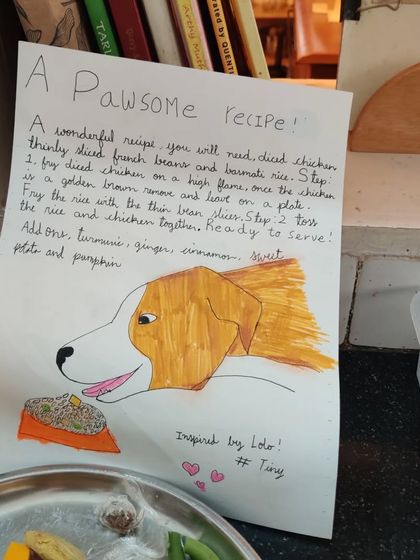 A Pawsome recipe!
A wonderful recipe. you will need, diced chicken,
thinly sliced french beans and basmati rice. Step:
1. fry diced chicken on a high flame, once the chicken
is a golden brown remove and leave on a plate.
Fry the rice with the thin bean slices. Step: 2 toss
the rice and chicken together. Ready to serve!
Add ons, turmuric, ginger, cinnamon, sweet
potato and pumpkin
Inspired by Lolo!
# Tiny